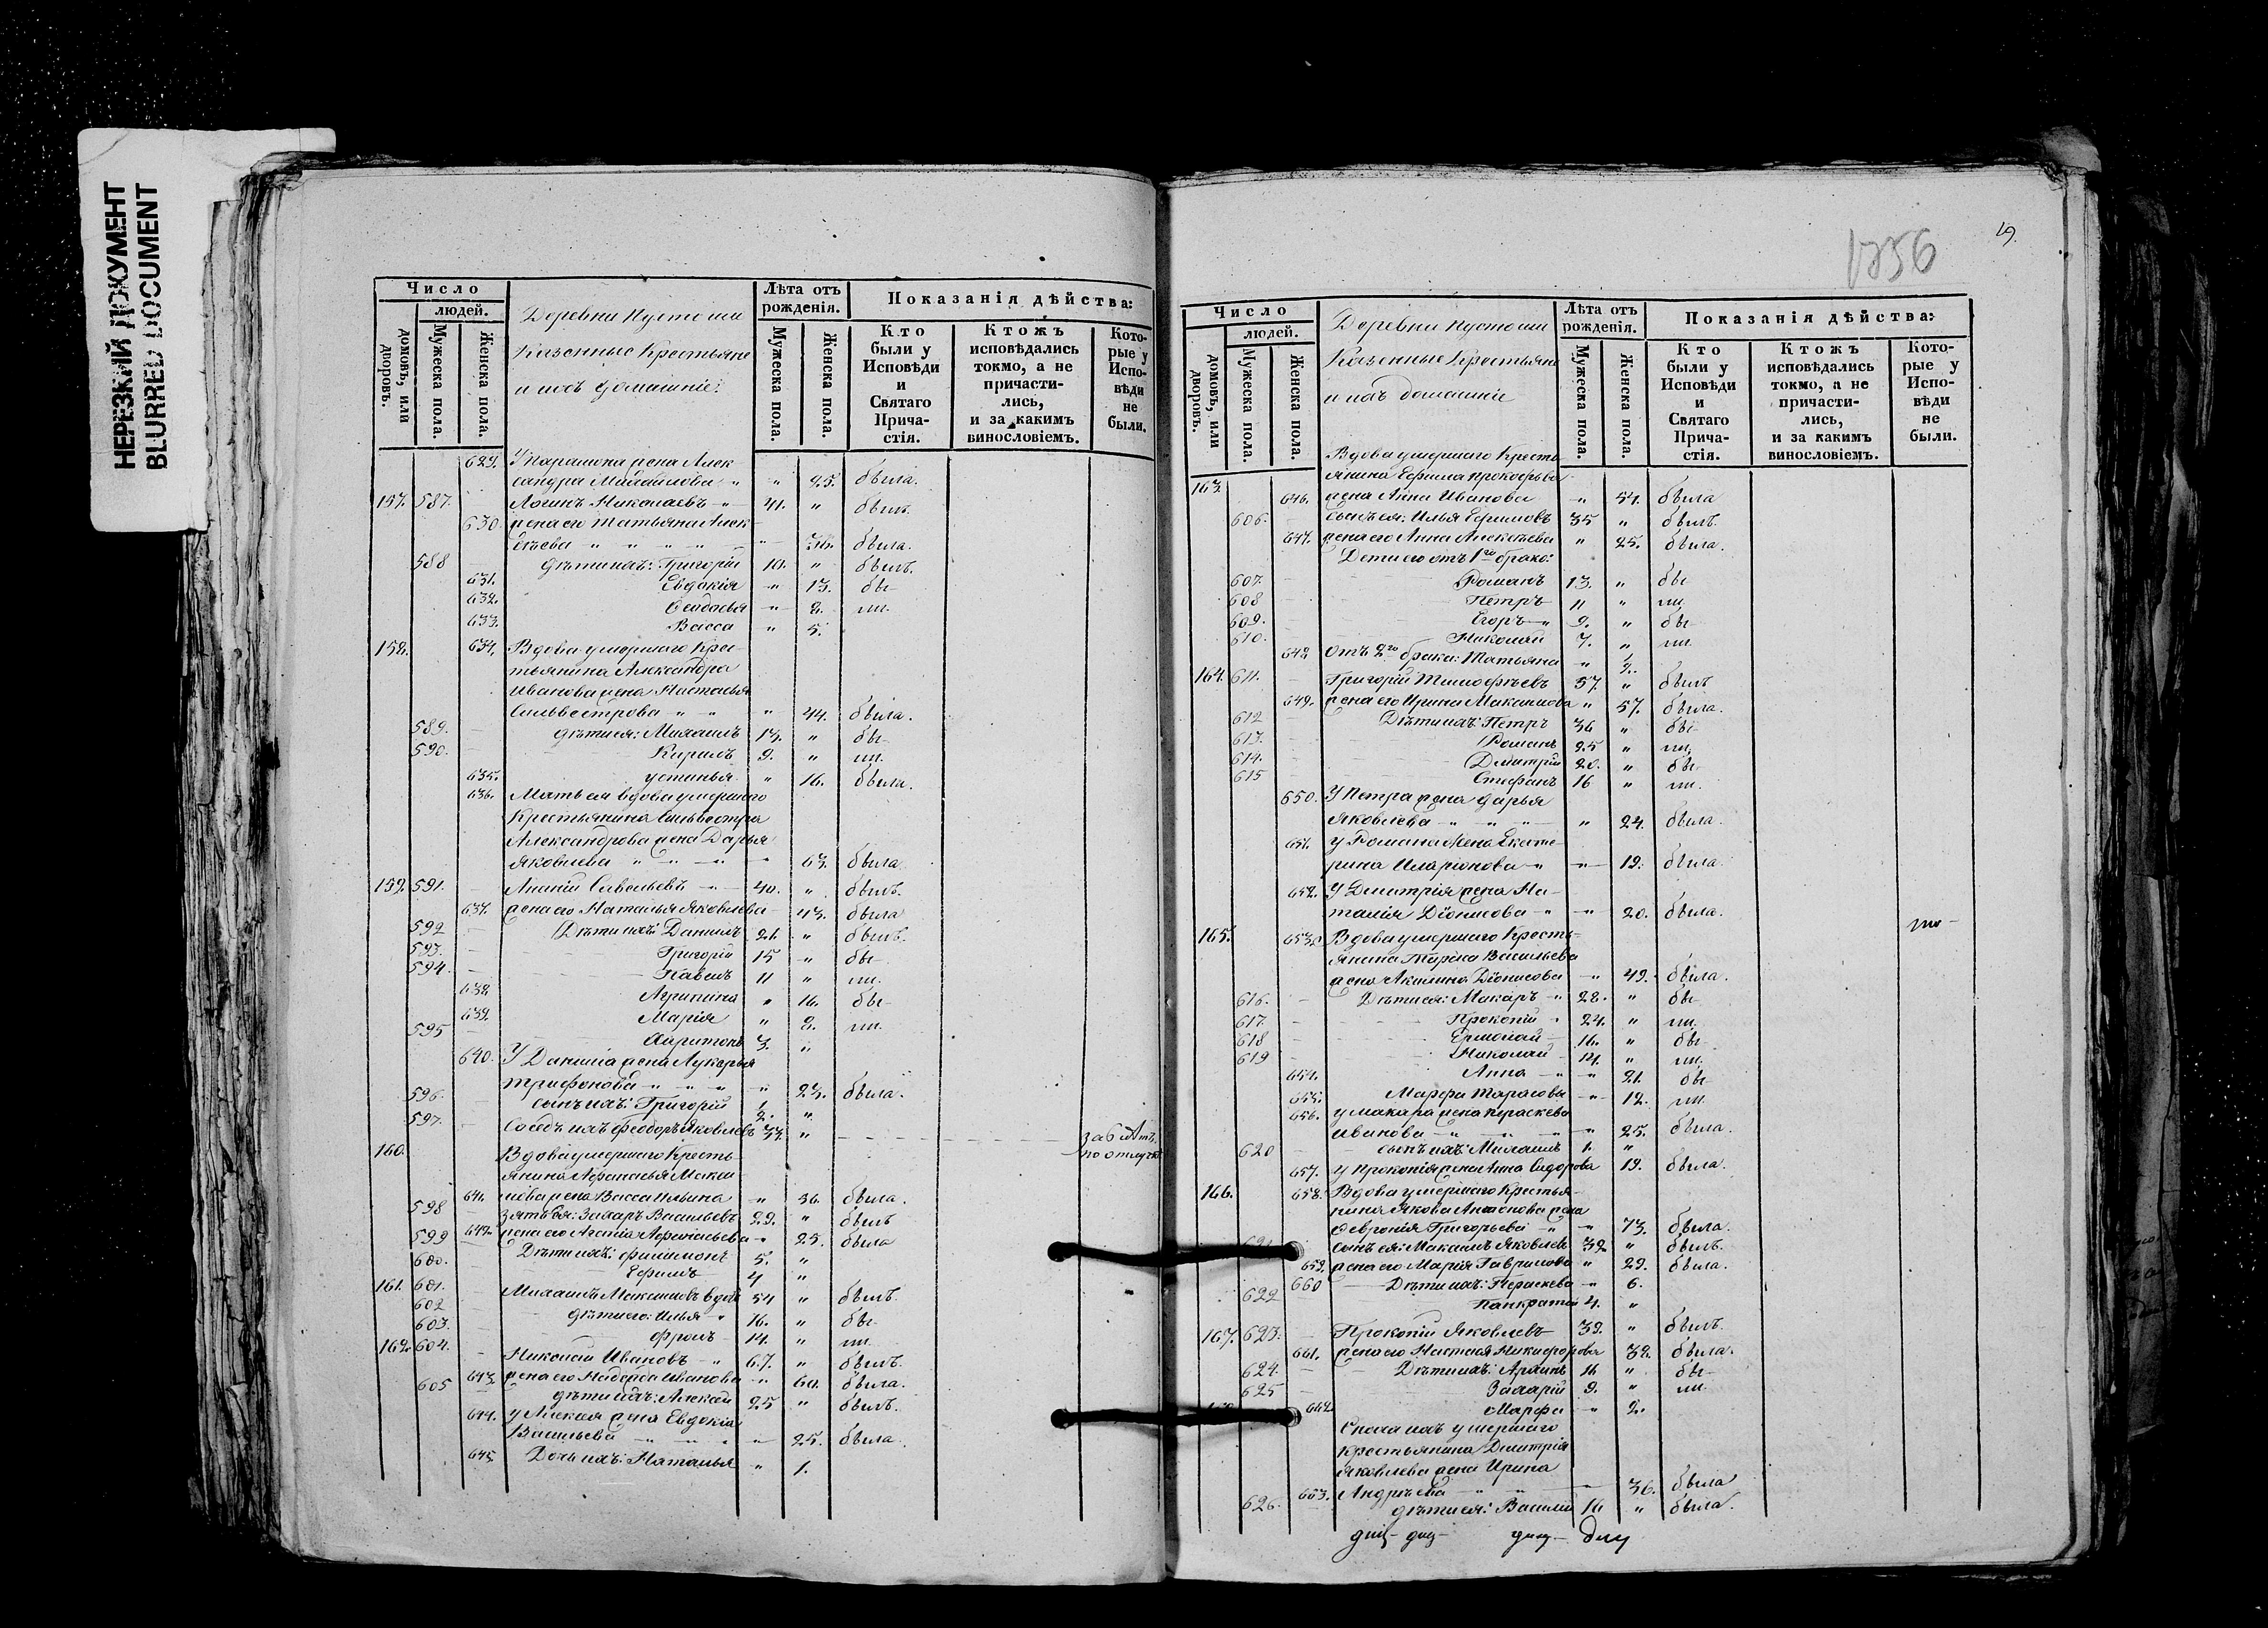 НЕРЕЗКИЙ ДОКУМЕНТ
BLURRED DOCUMENT
Число
людей.
домовъ, или дворовъ.
Мужеска пола.
Женска пола.
Деревни Пустоши
Казенные Крестьяне
и ихъ домашніе:
Лѣта отъ рожденія.
Мужеска пола.
Женска пола.
Показанія дѣйства:
Кто были у Исповѣди и Святаго Прича-стія.
Ктожъ исповѣдались токмо, а не причасти-лись, и за какимъ винословіемъ.
Кото-рые у Испо-вѣди не были.
629. У жена Алек
сандра Михайлова " " 25. была.
157. 587. Логинъ Николаевъ " 41. " былъ.
630. жена его Татьяна Алек
сѣева " " " " " была.
588 дѣти ихъ: Григорій 10. " былъ.
631. Евдокія " 13. бы
632. Ѳеодосья " 8. ли.
633. Васса " 5.
158. 634. Вдова умершаго Крес-
тьянина Александра
Иванова жена Настасья
Сильвестрова " " " 44. была.
589. дѣти ея: Михаилъ 13. " бы
590. Кирилъ 9. " ли.
635. устинья " 16. была.
636. Мать ея вдова умершаго
Крестьянина Сильвестра
Александрова жена Дарья
Яковлева " " " " 63. была
159. 591. Ананій Савельевъ " 40. " былъ.
637. жена его Наталья Яковлева 43. была
592 Дѣти ихъ: Данилъ 21. " былъ.
593. Григорій 15 " бы
594. Павелъ 11 " ли.
638 Агрипина " 16. бы
639. Марія " 8. ли.
595 Харитонъ 3. "
640. У Данила жена Лукерья
Трифонова " " " " 23. была.
596. сынъ ихъ: Григорій 1. "
597. Сосѣдъ ихъ Феодоръ Яковлевъ " по отлучкѣ
160. Вдова умершаго Кресть
янина Афанасья Макси
641. мова жена Васса Ильина " 56. была.
598 зять ея: Захаръ Васильевъ 29. " былъ
642. жена его Афанасьева " 25. была
599 Дѣти ихъ: Филимонъ 5. "
600. Ефимъ 4 "
161. 601. Михаилъ Максимовъ вдов 54 " былъ.
602 дѣти его: Илья " 16. " бы
603. Фролъ 14. " ли.
162. 604. Николай Ивановъ " 67. " былъ.
643. жена его Надежда Иванова " 60. была.
605 дѣти ихъ: Алексѣй 25 " былъ.
644. у Алексѣя жена Евдокія
Васильева " " " " 25. была.
645 Дочь ихъ: Наталья " 1.
1256
19.
Число
людей.
домовъ, или дворовъ.
Мужеска пола.
Женска пола.
Деревни Пустоши
Казенные Крестьяне
и ихъ домашніе
Лѣта отъ рожденія.
Мужеска пола.
Женска пола.
Показанія дѣйства:
Кто были у Исповѣди и Святаго Прича-стія.
Ктожъ исповѣдались токмо, а не причасти-лись, и за какимъ винословіемъ.
Кото-рые у Испо-вѣди не были.
163. Вдова умершаго Кресть
янина Ефима Прокофьева
646. жена Анна Иванова " 54. была
606. Сынъ ея: Илья Ефимовъ 35 " былъ.
647. жена его Анна Алексѣева " 25. была.
Дети его отъ 1го брака:
607. Романъ 13. " бы
608 Петръ 11 " ли
609. Егоръ " 9. " бы
610. Николай 7. " ли
648 Отъ 2го брака: Татьяна " 2.
164. 611. Григорій Тимофѣевъ 57. " былъ
649. жена его Ирина Максимова " 57. была.
612 Дѣти ихъ: Петръ 36 " бы
613. Романъ 25 " ли.
614. Дмитрій 20. " бы
615 Стефанъ 16 " ли.
650. У Петра жена Дарья
Яковлева " " " " 24. была.
651. у Романа жена Екате-
рина Иларіонова " " 19. была.
652. У Дмитрія жена На-
талія Діонисова " " 20. была.
165. 653. Вдова умершаго Кресть-
янина Тараса Васильева
жена Акилина Діонисова " 49. была.
616. Дѣти ея: Макаръ " 28. " бы
617. Прокопій " 24. " ли.
618 Ермолай 16. " бы
619 Николай 14. " ли.
654. Анна " " 21. бы
655. Марфа Тарасова " 12. ли.
656. у Макара жена Праскева
Иванова " " " " 25. была.
620 сынъ ихъ: Михаилъ 1. "
657. у Прокопія жена Анна Сидорова 19. была.
166. 658. Вдова умершаго Крестья-
нина Якова Антонова жена
Февронія Григорьева " " 73. была.
сынъ ея: Михаилъ Яковлев 32 " былъ.
659. жена его Марія Гаврилова " 29. была.
660 Дѣти ихъ: Праскева " 6.
622 Панкратій 4. "
167. 623. Прокопій Яковлевъ 39. " былъ.
661. жена его Настасія Никифорова 38. была.
624. Дѣти ихъ: Архипъ 11. " бы
625 Захарій 9. " ли.
662. Марфа " 2.
Сноха ихъ умершаго
Крестьянина Дмитрія
Яковлева жена Ирина
663. Андрѣева " " " 36. была
626. дѣти ея: Василій 16 " была.